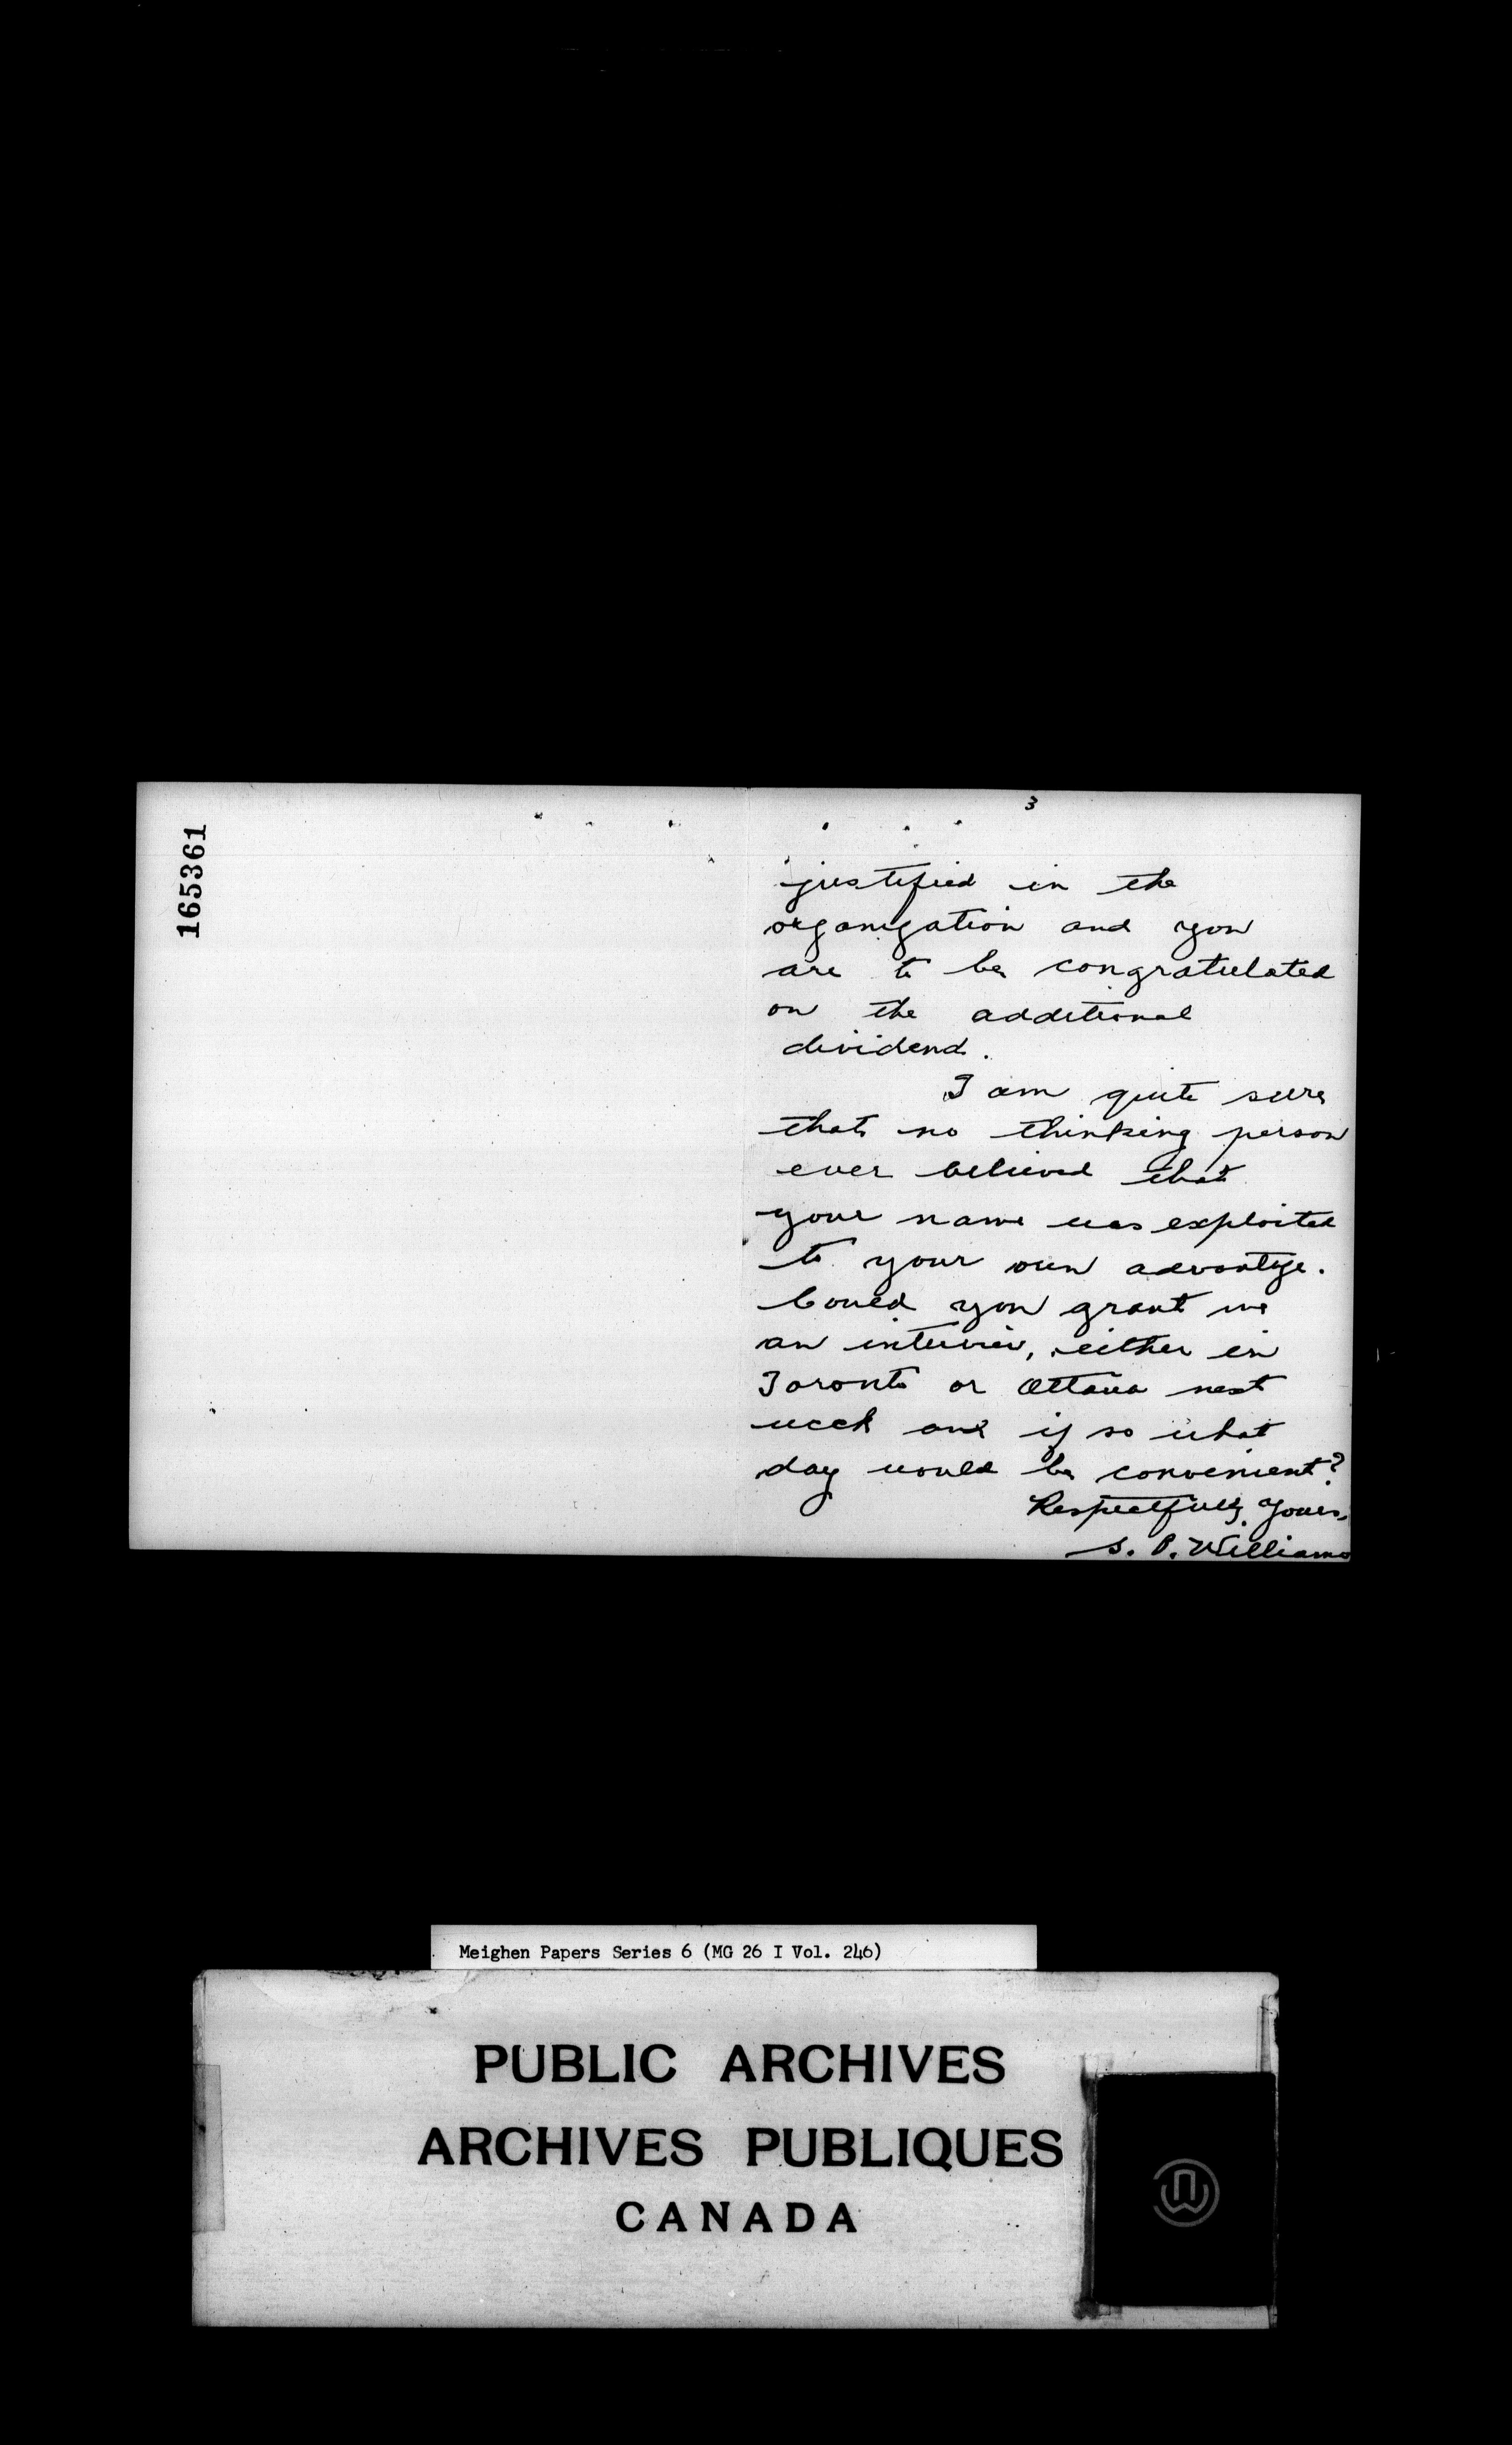 165361
3
justified in the
organization and you
are to be congratulated
on the additional
dividend.
I am quite sure
that no thinking person
ever believed that
your name was exploited
to your own advantage.
Could you grant me
an interview, either in
Toronto or Ottawa next
week and if so what
day would be convenient?
Respectfully Yours,
S. P. Williams
Meighen Papers Series 6 (MG 26 I Vol. 246)
PUBLIC ARCHIVES
ARCHIVES PUBLIQUES
CANADA